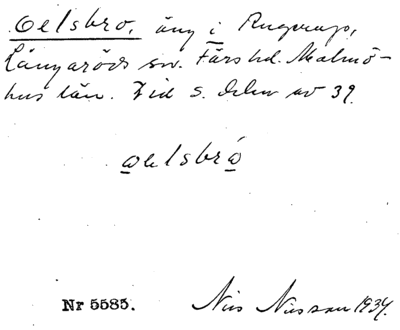 Oelsbro, äng i Rugerup,
Långaröds sn. Färs hd. Malmö-
hus län. Vid s. delen av 39.
oelsbró
Nr 5585.
Nils Nilsson 1934.